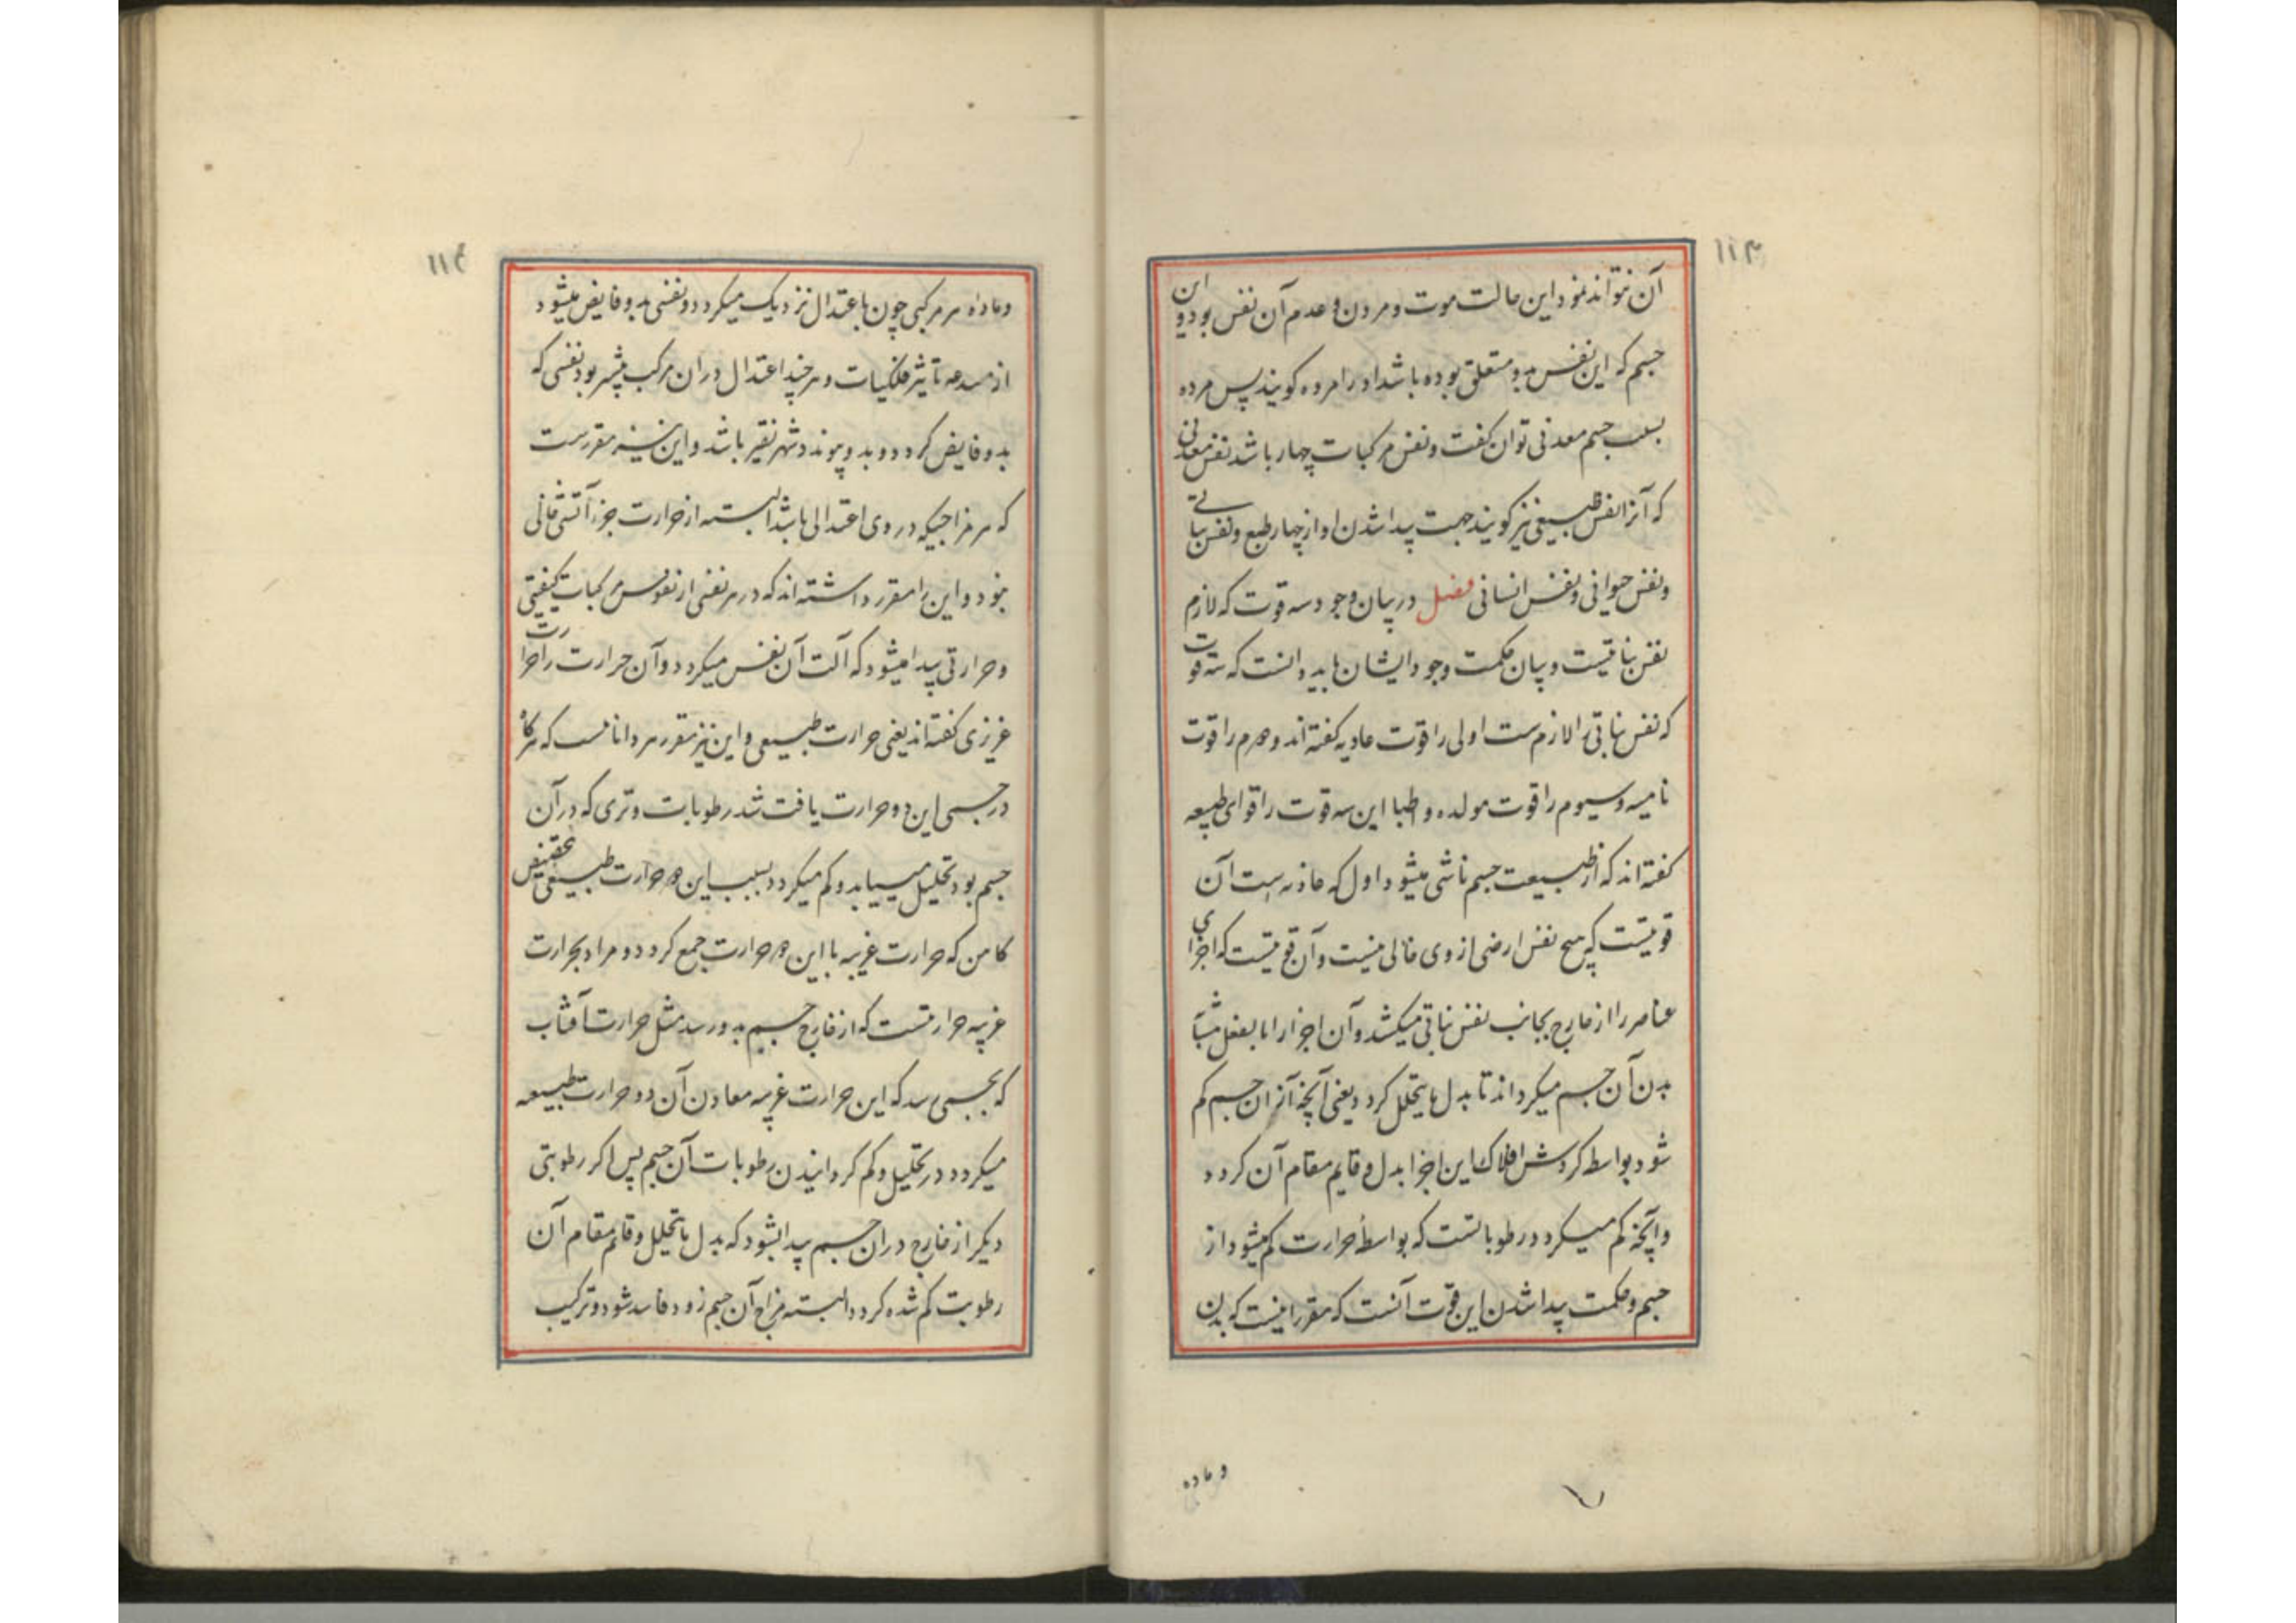 ۱۱۳
آن نتواند نمود این حالت موت و مردن و عدم آن نفس بود و این
جسم که این نفس بدو متعلق بوده باشد او را مرده کویند پس مرده
بسبب جسم معدنی توان کفت و نفس مرکبات چهار باشد نفس معدنی
که آنرا نفس طبیعی نیز کویند جهت پیدا شدن او از چهار طبع و نفس نباتی
و نفس حیوانی و نفس انسانی فصل در بیان وجود سه قوت که لازم
نفس نباتیست و بیان حکمت وجود ایشان باید دانست که سه قوت
که نفس نباتی را لازم ست اولی را قوت غاذیه کفته اند و دوم را قوت
نامیه و سیوم را قوت مولده و اطبا این سه قوت را قوای طبیعه
کفته اند که از طبیعت جسم ناشی میشود اول که غاذیه است آن
قوتیست که هیچ نفس ارضی از وی خالی نیست و آن قوتیست که اجزای
عناصر را از خارج بجانب نفس نباتی میکشد و آن اجزا را بالفعل مشابه
بدن آن جسم میکرداند تا بدل ما یتحلل کردد یعنی آنچه از ان جسم کم
شود بواسطه کردش افلاک این اجزا بدل و قایم مقام آن کردد
و آنچه کم میکردد رطوباتست که بواسطهٔ حرارت کم میشود از
جسم و حکمت پیدا شدن این قوت آنست که مقرر اینست که بدن
و ماده
۱۱۴
و ماده هر مرکبی چون باعتدال نزدیک میکردد و نفسی بدو فایض میشود
از مبدعه تأثیر فلکیات و هر چند اعتدال در ان مرکب بیشتر بود نفسی که
بدو فایض کردد و بدو پیوندد شهر نقیر باشد و این نیز مقررست
که هر مزاجیکه در وی اعتدالی باشد البته از حرارت جزء آتشی خالی
نبود و این را مقرر داشته اند که در هر نفسی از نفوس مرکبات کیفیتی
و حرارتی پیدا میشود که آلت آن نفس میکردد و آن حرارت را حرارت
غریزی کفته اند یعنی حرارت طبیعی و این نیز مقرر هر داناست که هرکاه
در جسمی این دو حرارت یافت شد رطوبات و تری که در آن
جسم بود تحلیل مییابد و کم میکردد بسبب این دو حرارت طبیعی بتخصیص
کا من که حرارت غریبه با این دو حرارت جمع کردد و مراد بحرارت
غریبه حرارتست که از خارج جسم بدو رسد مثل حرارت آفتاب
که بجسمی رسد که این حرارت غریبه معاون آن دو حرارت طبیعه
میکردد در تحلیل و کم کردانیدن رطوبات آن جسم پس اکر رطوبتی
دیکر از خارج در ان جسم پیدا نشود که بدل ما یتحلل و قائم مقام آن
رطوبت کم شده کردد البته مزاج آن جسم زود فاسد شود و ترکیب